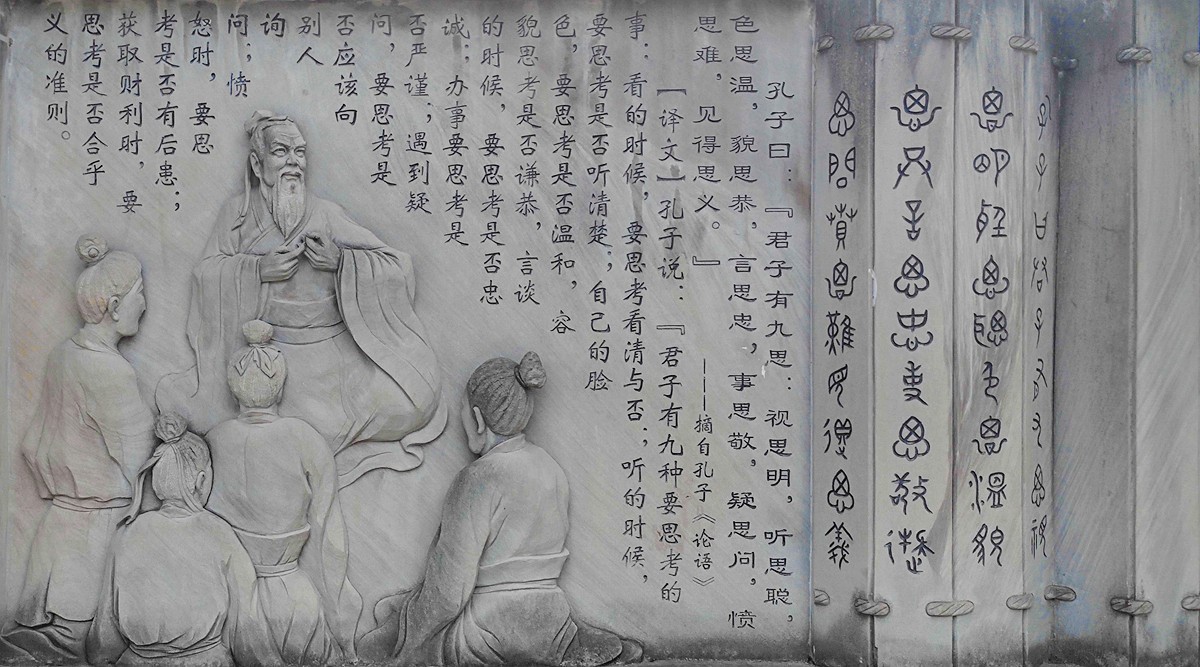 孔子曰君子有九思視
思明聽思聰色思溫貌
思恭言思忠事思敬疑
思問憤思難見得思義
孔子曰：『君子有九思：视思明，听思聪，
色思温，貌思恭，言思忠，事思敬，疑思问，愤
思难，见得思义。』
———摘自孔子《论语》
［译文］孔子说：『君子有九种要思考的
事：看的时候，要思考看清与否；听的时候，
要思考是否听清楚；自己的脸
色，要思考是否温和，容
貌思考是否谦恭，言谈
的时候，要思考是否忠
诚；办事要思考是
否严谨；遇到疑
问，要思考是
否应该向
别人
询
问；愤
怒时，要思
考是否有后患；
获取财利时，要
思考是否合乎
义的准则。